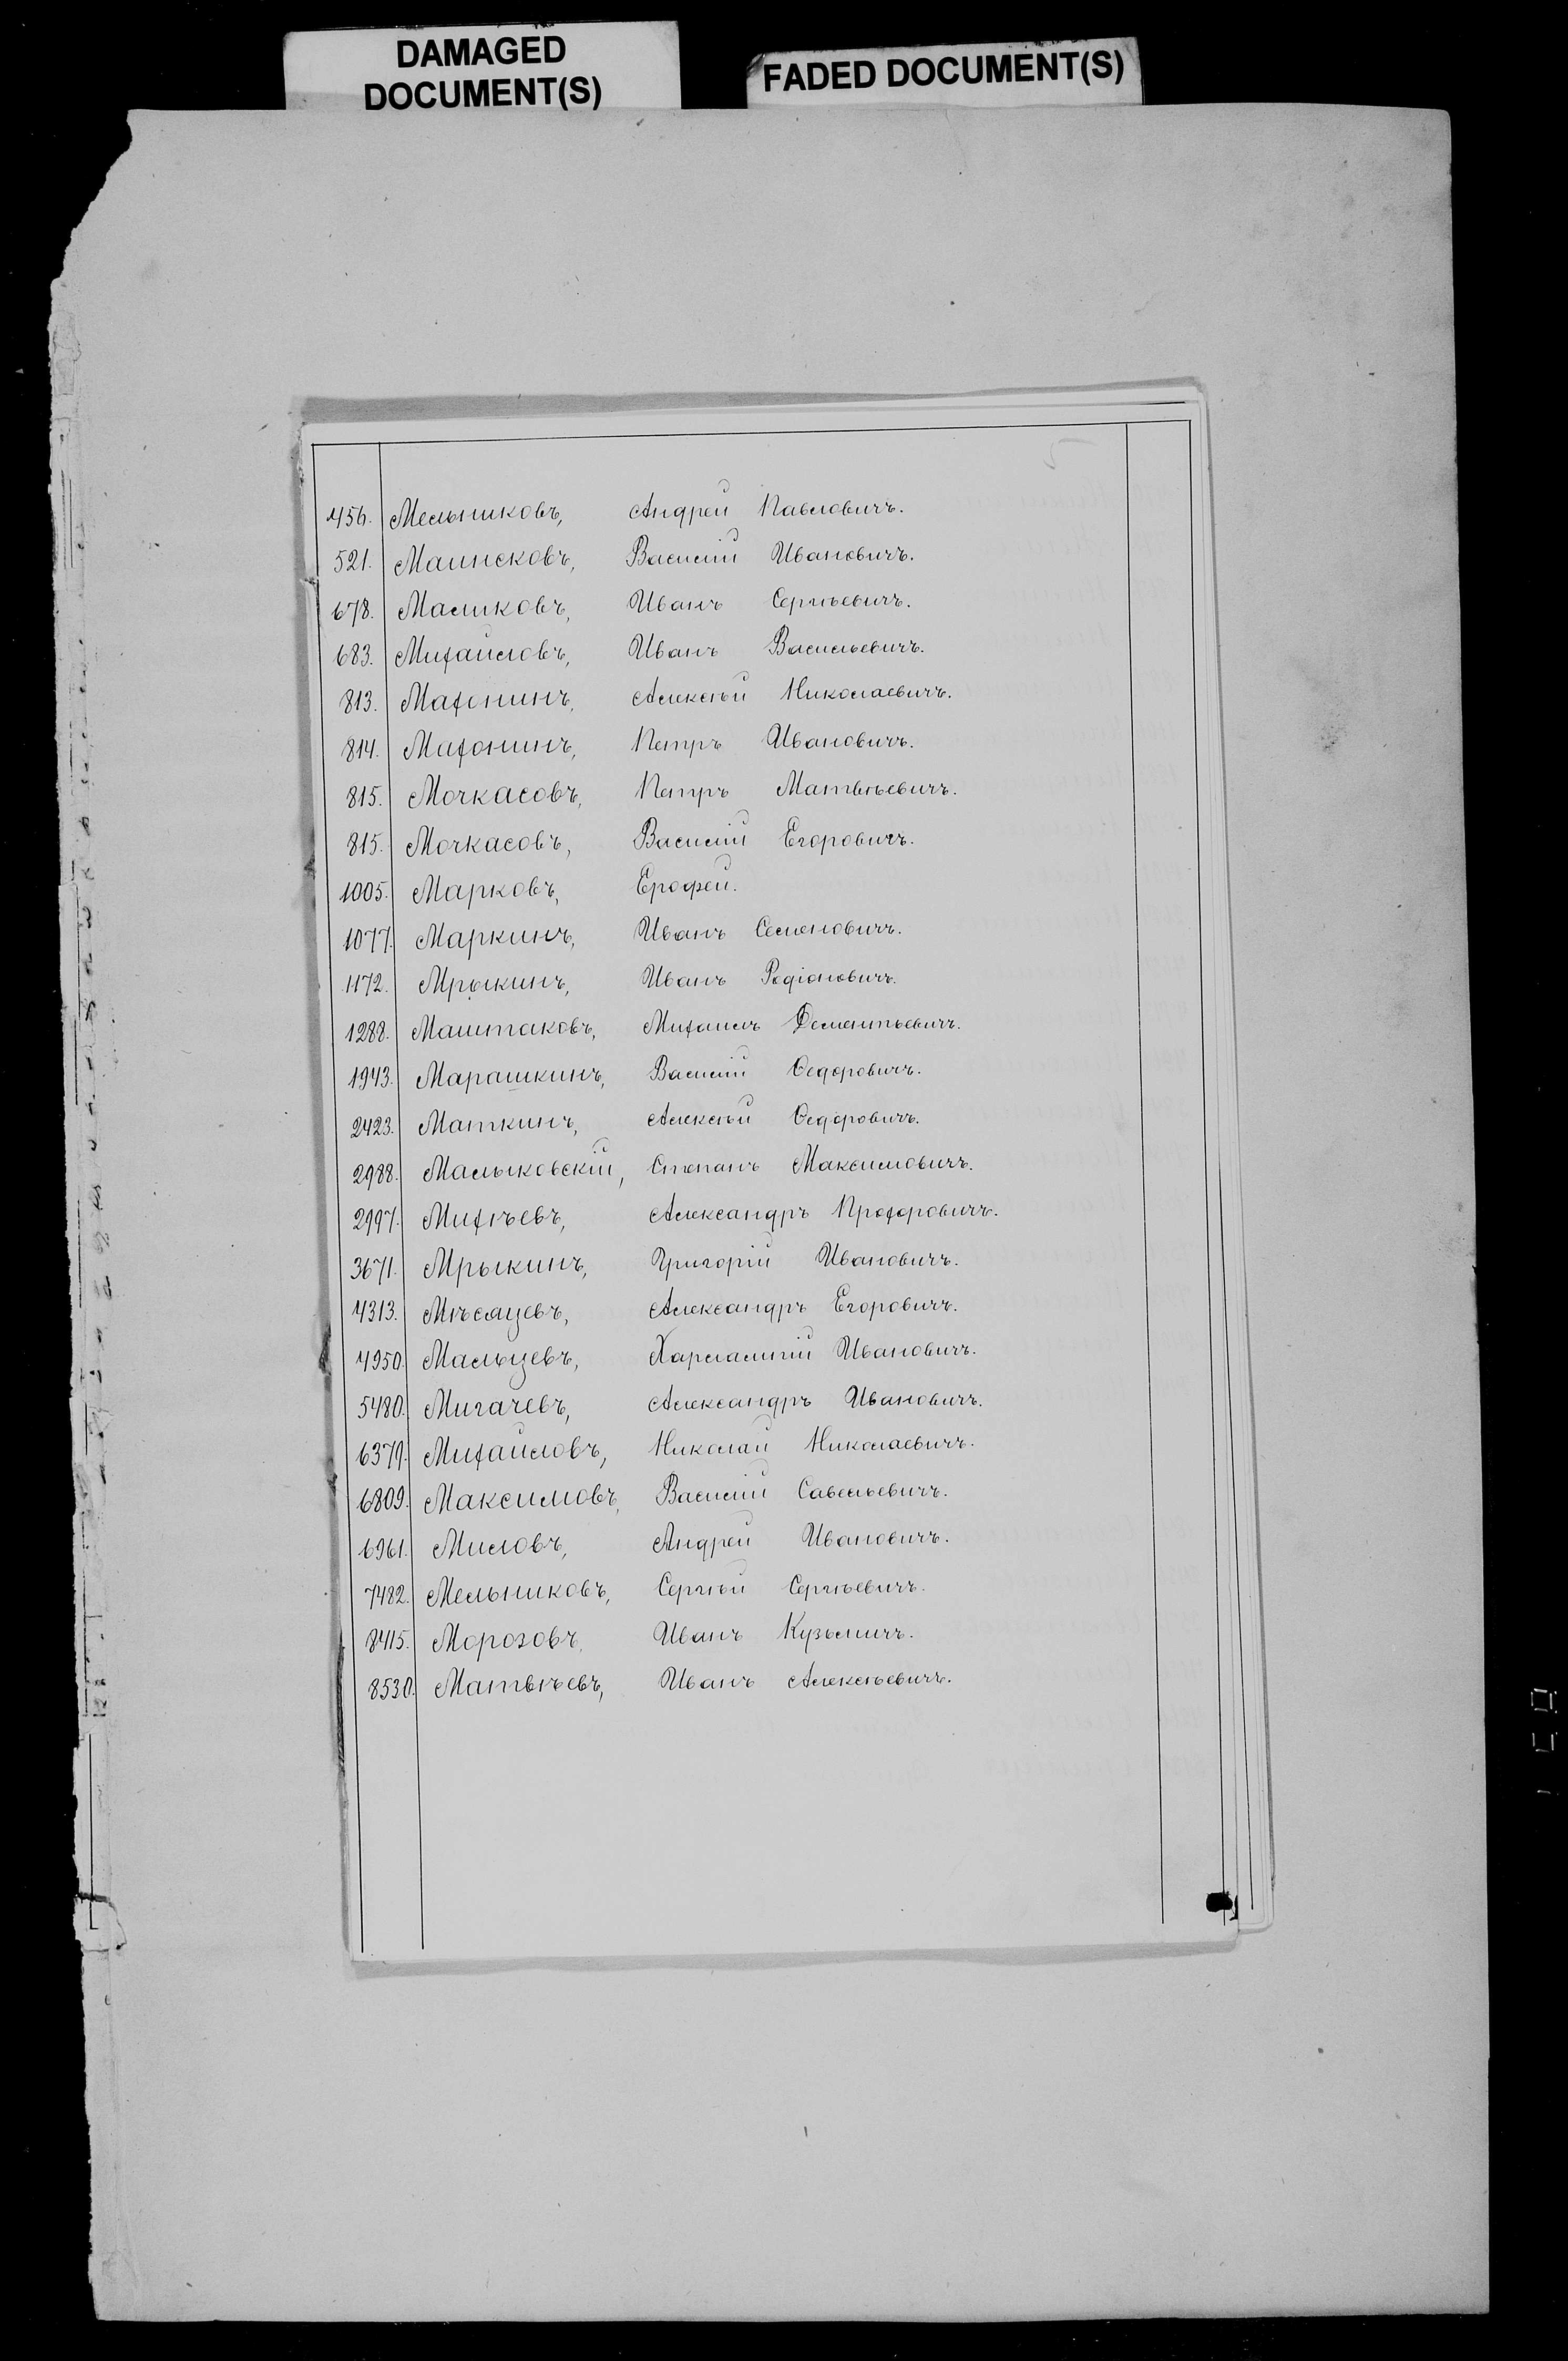 DAMAGED
DOCUMENT(S)
FADED DOCUMENT(S)
456. Мельниковъ, Андрей Павловичъ.
521. Василій Ивановичъ.
678. Маликовъ, Иванъ Сергѣевичъ.
683. Михайловъ, Иванъ Васильевичъ.
813. Махонинъ, Алексѣй Николаевичъ.
814. Махонинъ, Петръ Ивановичъ.
815. Мочкасовъ, Петръ Матвѣевичъ.
815. Мочкасовъ, Василій Егоровичъ.
1005. Марковъ, Ерофей.
1077. Маркинъ, Иванъ Семеновичъ.
1172. Мрыкинъ, Иванъ Родіоновичъ.
1288. Маштаковъ, Михаилъ Дементьевичъ.
1943. Марашкинъ, Василій Ѳедоровичъ.
2423. Маткинъ, Алексѣй Ѳедоровичъ.
2988. Малыковскій, Степанъ Максимовичъ.
2997. Михѣевъ, Александръ Прохоровичъ.
3671. Мрыкинъ, Григорій Ивановичъ.
4313. Мѣсяцевъ, Александръ Егоровичъ.
4950. Мальцевъ, Харлампій Ивановичъ.
5480. Мигачевъ, Александръ Ивановичъ.
6379. Михайловъ, Николай Николаевичъ.
6809. Максимовъ, Василій Савельевичъ.
6961. Миловъ, Андрей Ивановичъ.
7482. Мельниковъ, Сергѣй Сергѣевичъ.
8415. Морозовъ, Иванъ Кузьмичъ.
8530. Матвѣевъ, Иванъ Алексѣевичъ.